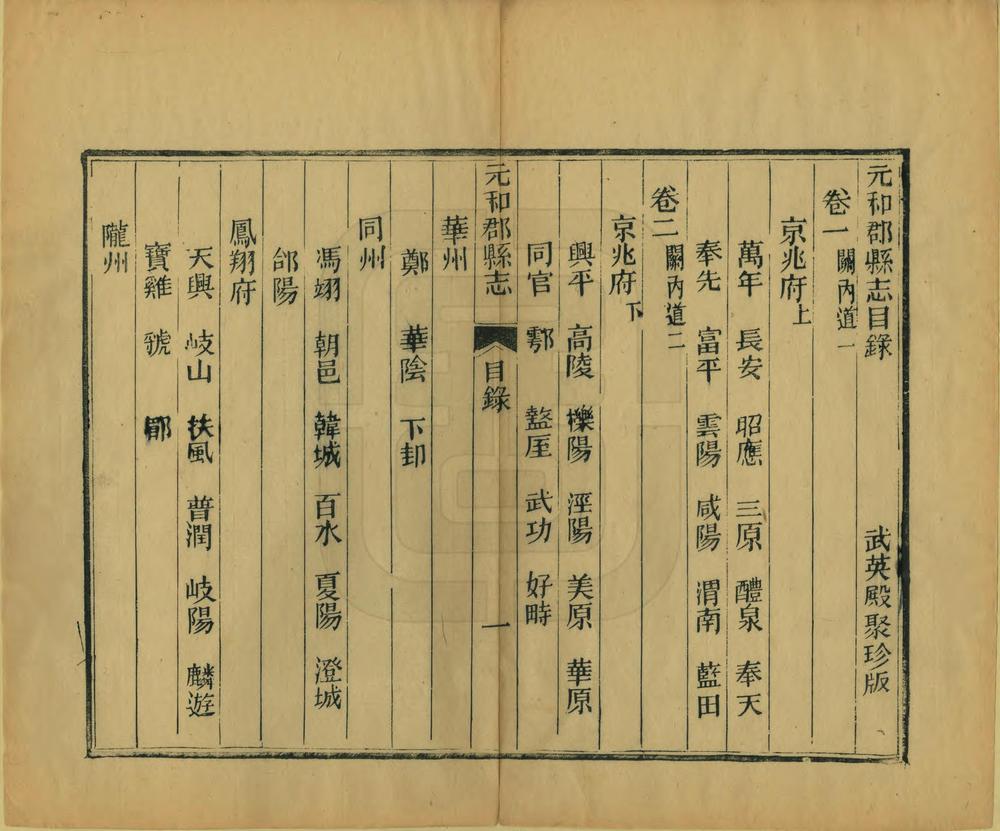 元和郡縣志目錄 武英殿聚珍版
卷一 關內道一
京兆府上
萬年 長安 昭應 三原 醴泉 奉天
奉先 富平 雲陽 咸陽 渭南 藍田
卷二 關內道二
京兆府下
興平 高陵 櫟陽 涇陽 美原 華原
同官 鄠 盩厔 武功 好畤
元和郡縣志 目錄 一
華州
鄭 華陰 下邽
同州
馮翊 朝邑 韓城 百水 夏陽 澄城
郃陽
鳳翔府
天興 岐山 扶風 普潤 岐陽 麟遊
寶雞 虢 郿
隴州